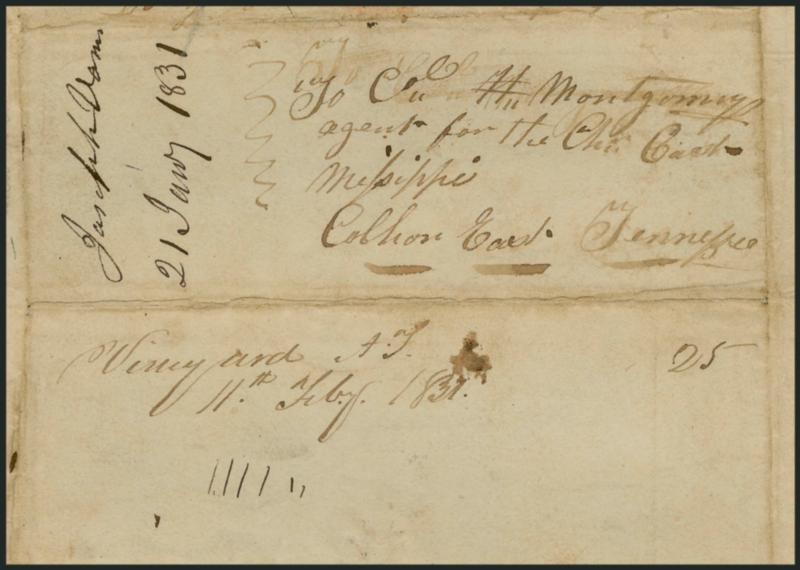 Joseph Vann
21 Jany 1831
To Col Hu Montgomery
agent for the Che. East
Missippi
Colhon East Tennessee
Vineyard A.T.
11.th Feby. 1831.
25